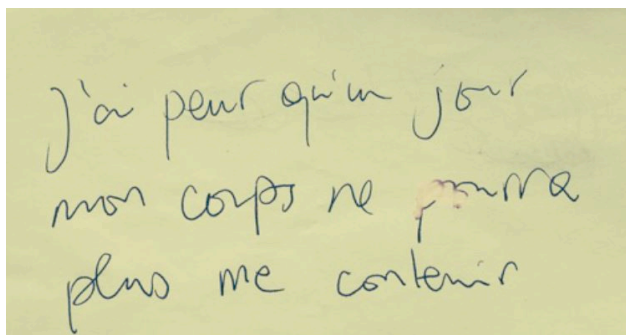 J'ai peur qu'un jour
mon corps ne pourra
plus me contenir